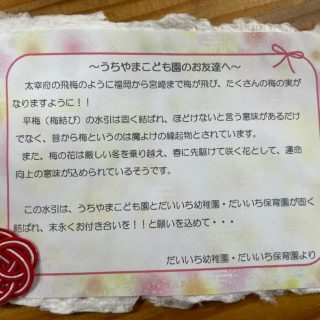 ～うちやまこども園のお友達へ～
太宰府の飛梅のように福岡から宮崎まで梅が飛び、たくさんの梅の実が
なりますように！！
平梅（梅結び）の水引は固く結ばれ、ほどけないと言う意味があるだけ
でなく、昔から梅というのは魔よけの縁起物とされています。
また、梅の花は厳しい冬を乗り越え、春に先駆けて咲く花として、運命
向上の意味が込められているそうです。
この水引は、うちやまこども園とだいいち幼稚園・だいいち保育園が固く
結ばれ、末永くお付き合いを！！と願いを込めて・・・
だいいち幼稚園・だいいち保育園より